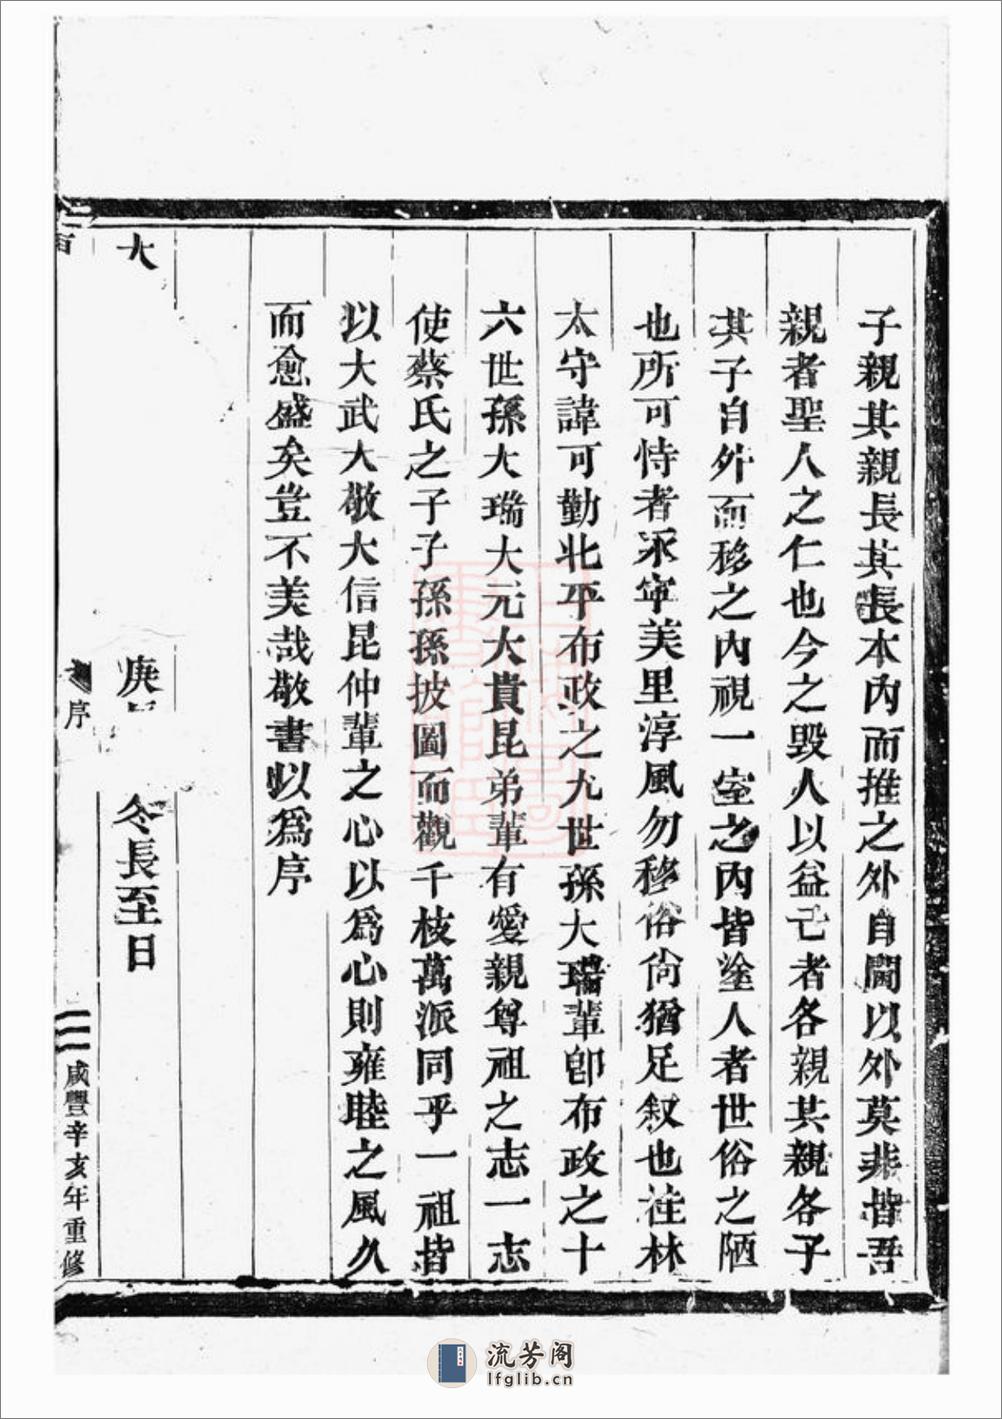 子親其親長其長本內而推之外自閫以外莫非皆吾
親者聖人之仁也今之毀人以益己者各親其親各子
其子自外而移之內視一室之內皆塗人者世俗之陋
也所可恃者永寧美里淳風勿移俗尙猶足叙也徃林
太守諱可勤北平布政之九世孫大瑞輩卽布政之十
六世孫大瑞大元大貴昆弟輩有愛親尊祖之志一志
使蔡氏之子子孫孫披圖而觀千枝萬派同乎一祖皆
以大武大敬大信昆仲輩之心以爲心則雍睦之風久
而愈盛矣豈不美哉敬書以爲序
大 庚 冬長至日
序 二 咸豐辛亥年重修
流芳阁
lfglib.cn